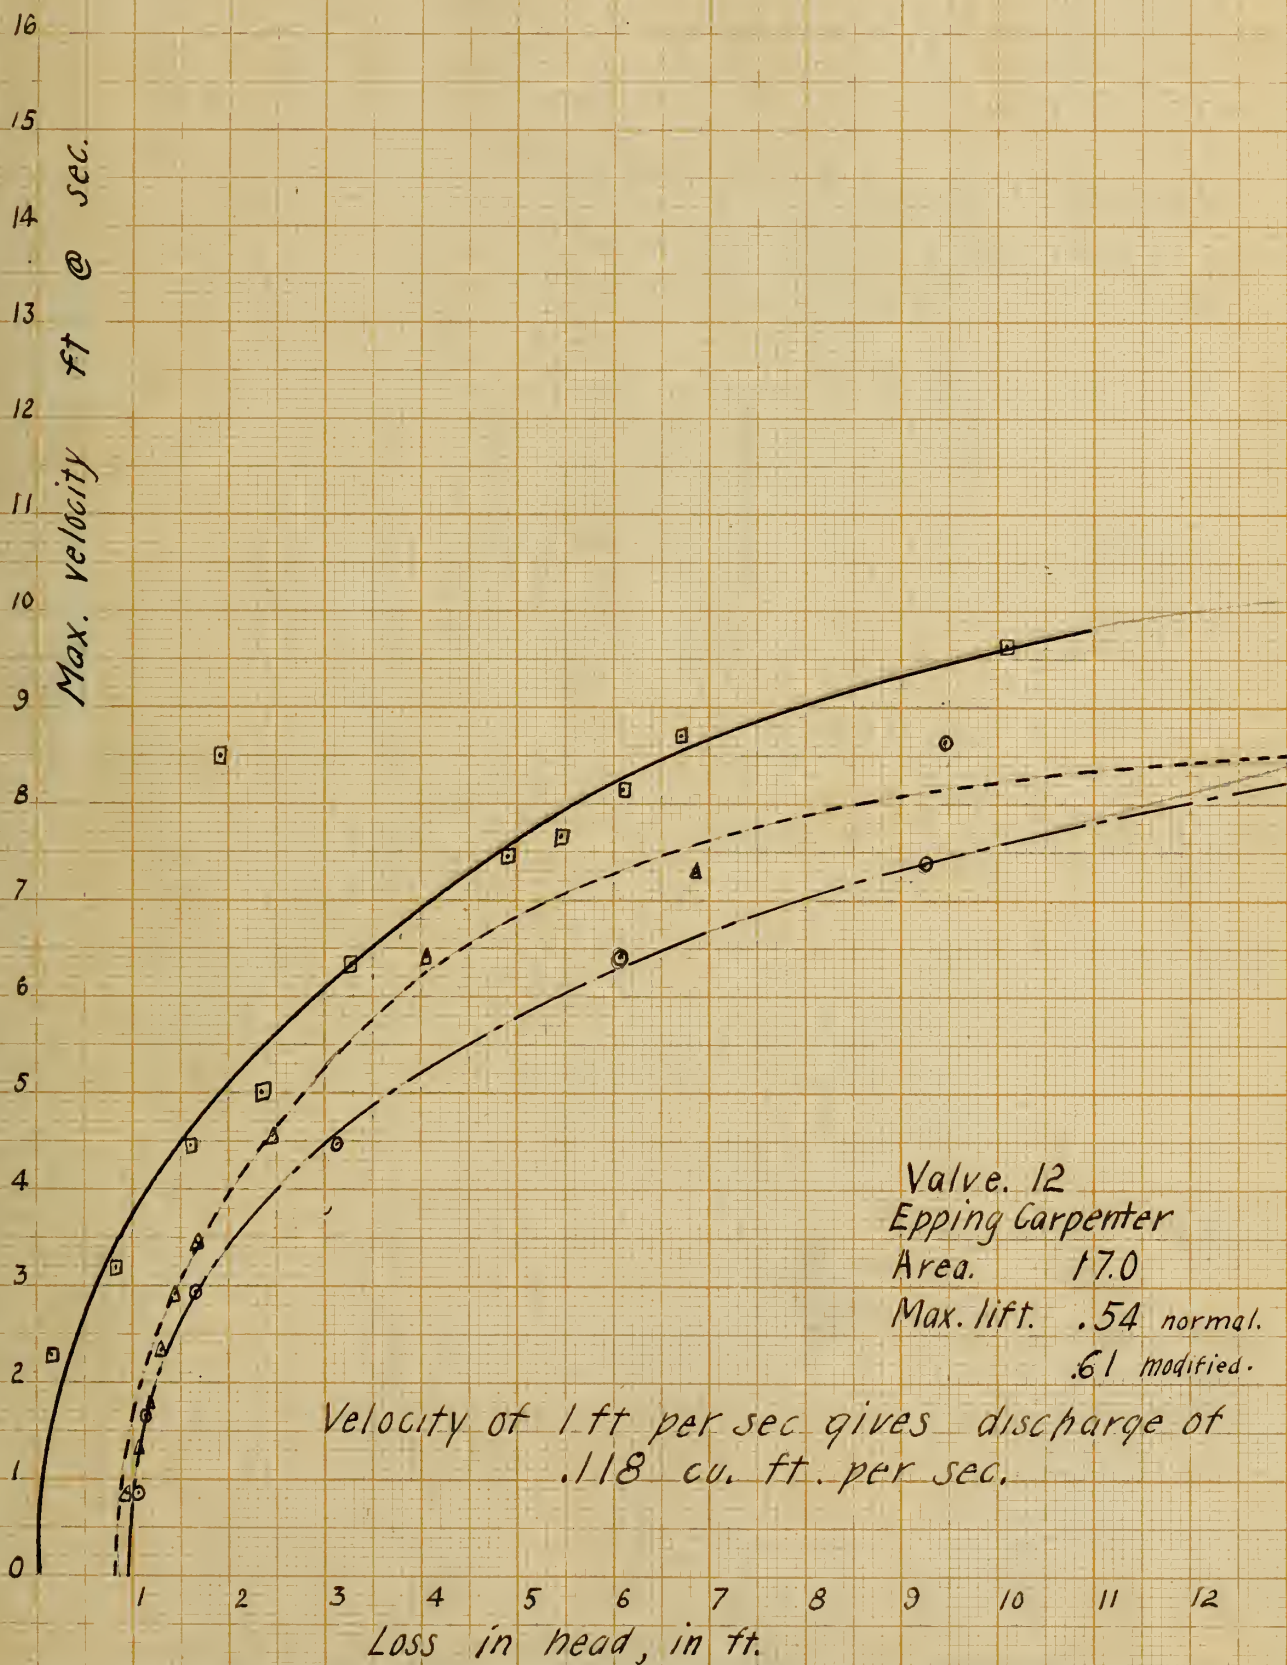 16
15
14
13
12
11
10
9
8
7
6
5
4
3
2
1
0
Max. velocity ft @ sec.
Valve. 12
Epping Carpenter
Area. 17.0
Max. lift. .54 normal.
.61 modified.
Velocity of 1 ft per sec gives discharge of
.118 cu. ft. per sec.
1 2 3 4 5 6 7 8 9 10 11 12
Loss in head, in ft.